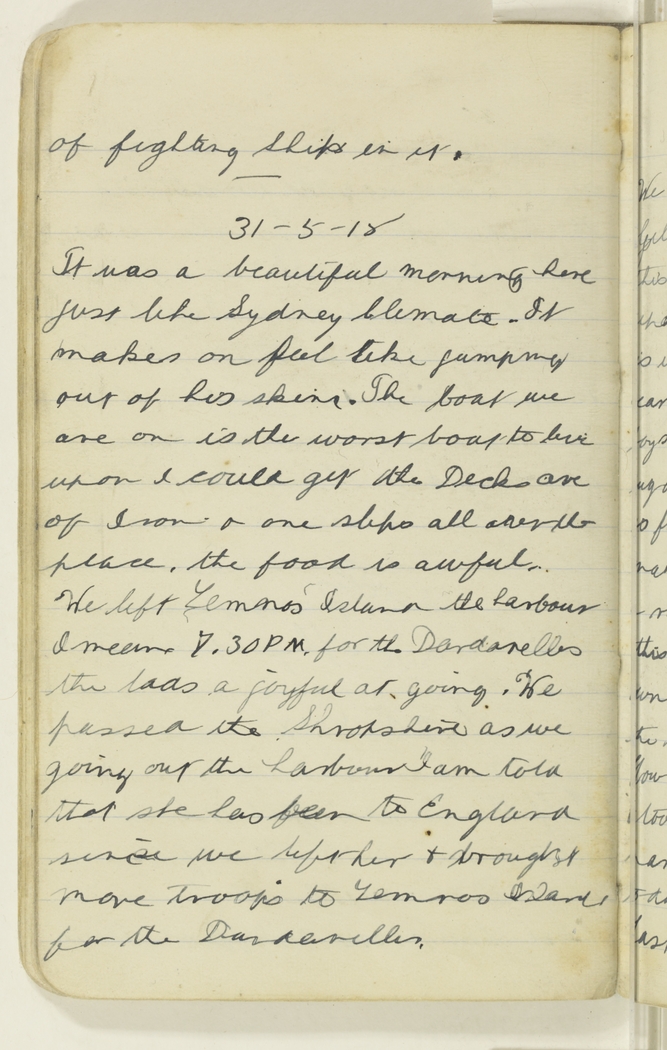 of fighting ships in it.
31-5-15
It was a beautiful morning here
just like Sydney Climate. It
makes on feel like jumping
out of his skin. The boat we
are on is the worst boat to live
upon I could get the Decks are
of Iron & one slips all over the
place. the food is awful.
We left Lemnos Island the harbour
I mean 7.30 P.M. for the Dardanelles
the lads a joyful at going. We
passed the Shropshire as we
going out the harbour I am told
that she has been to England
since we left her & brought
more troops to Lemnos Island
for the Dardanelles.